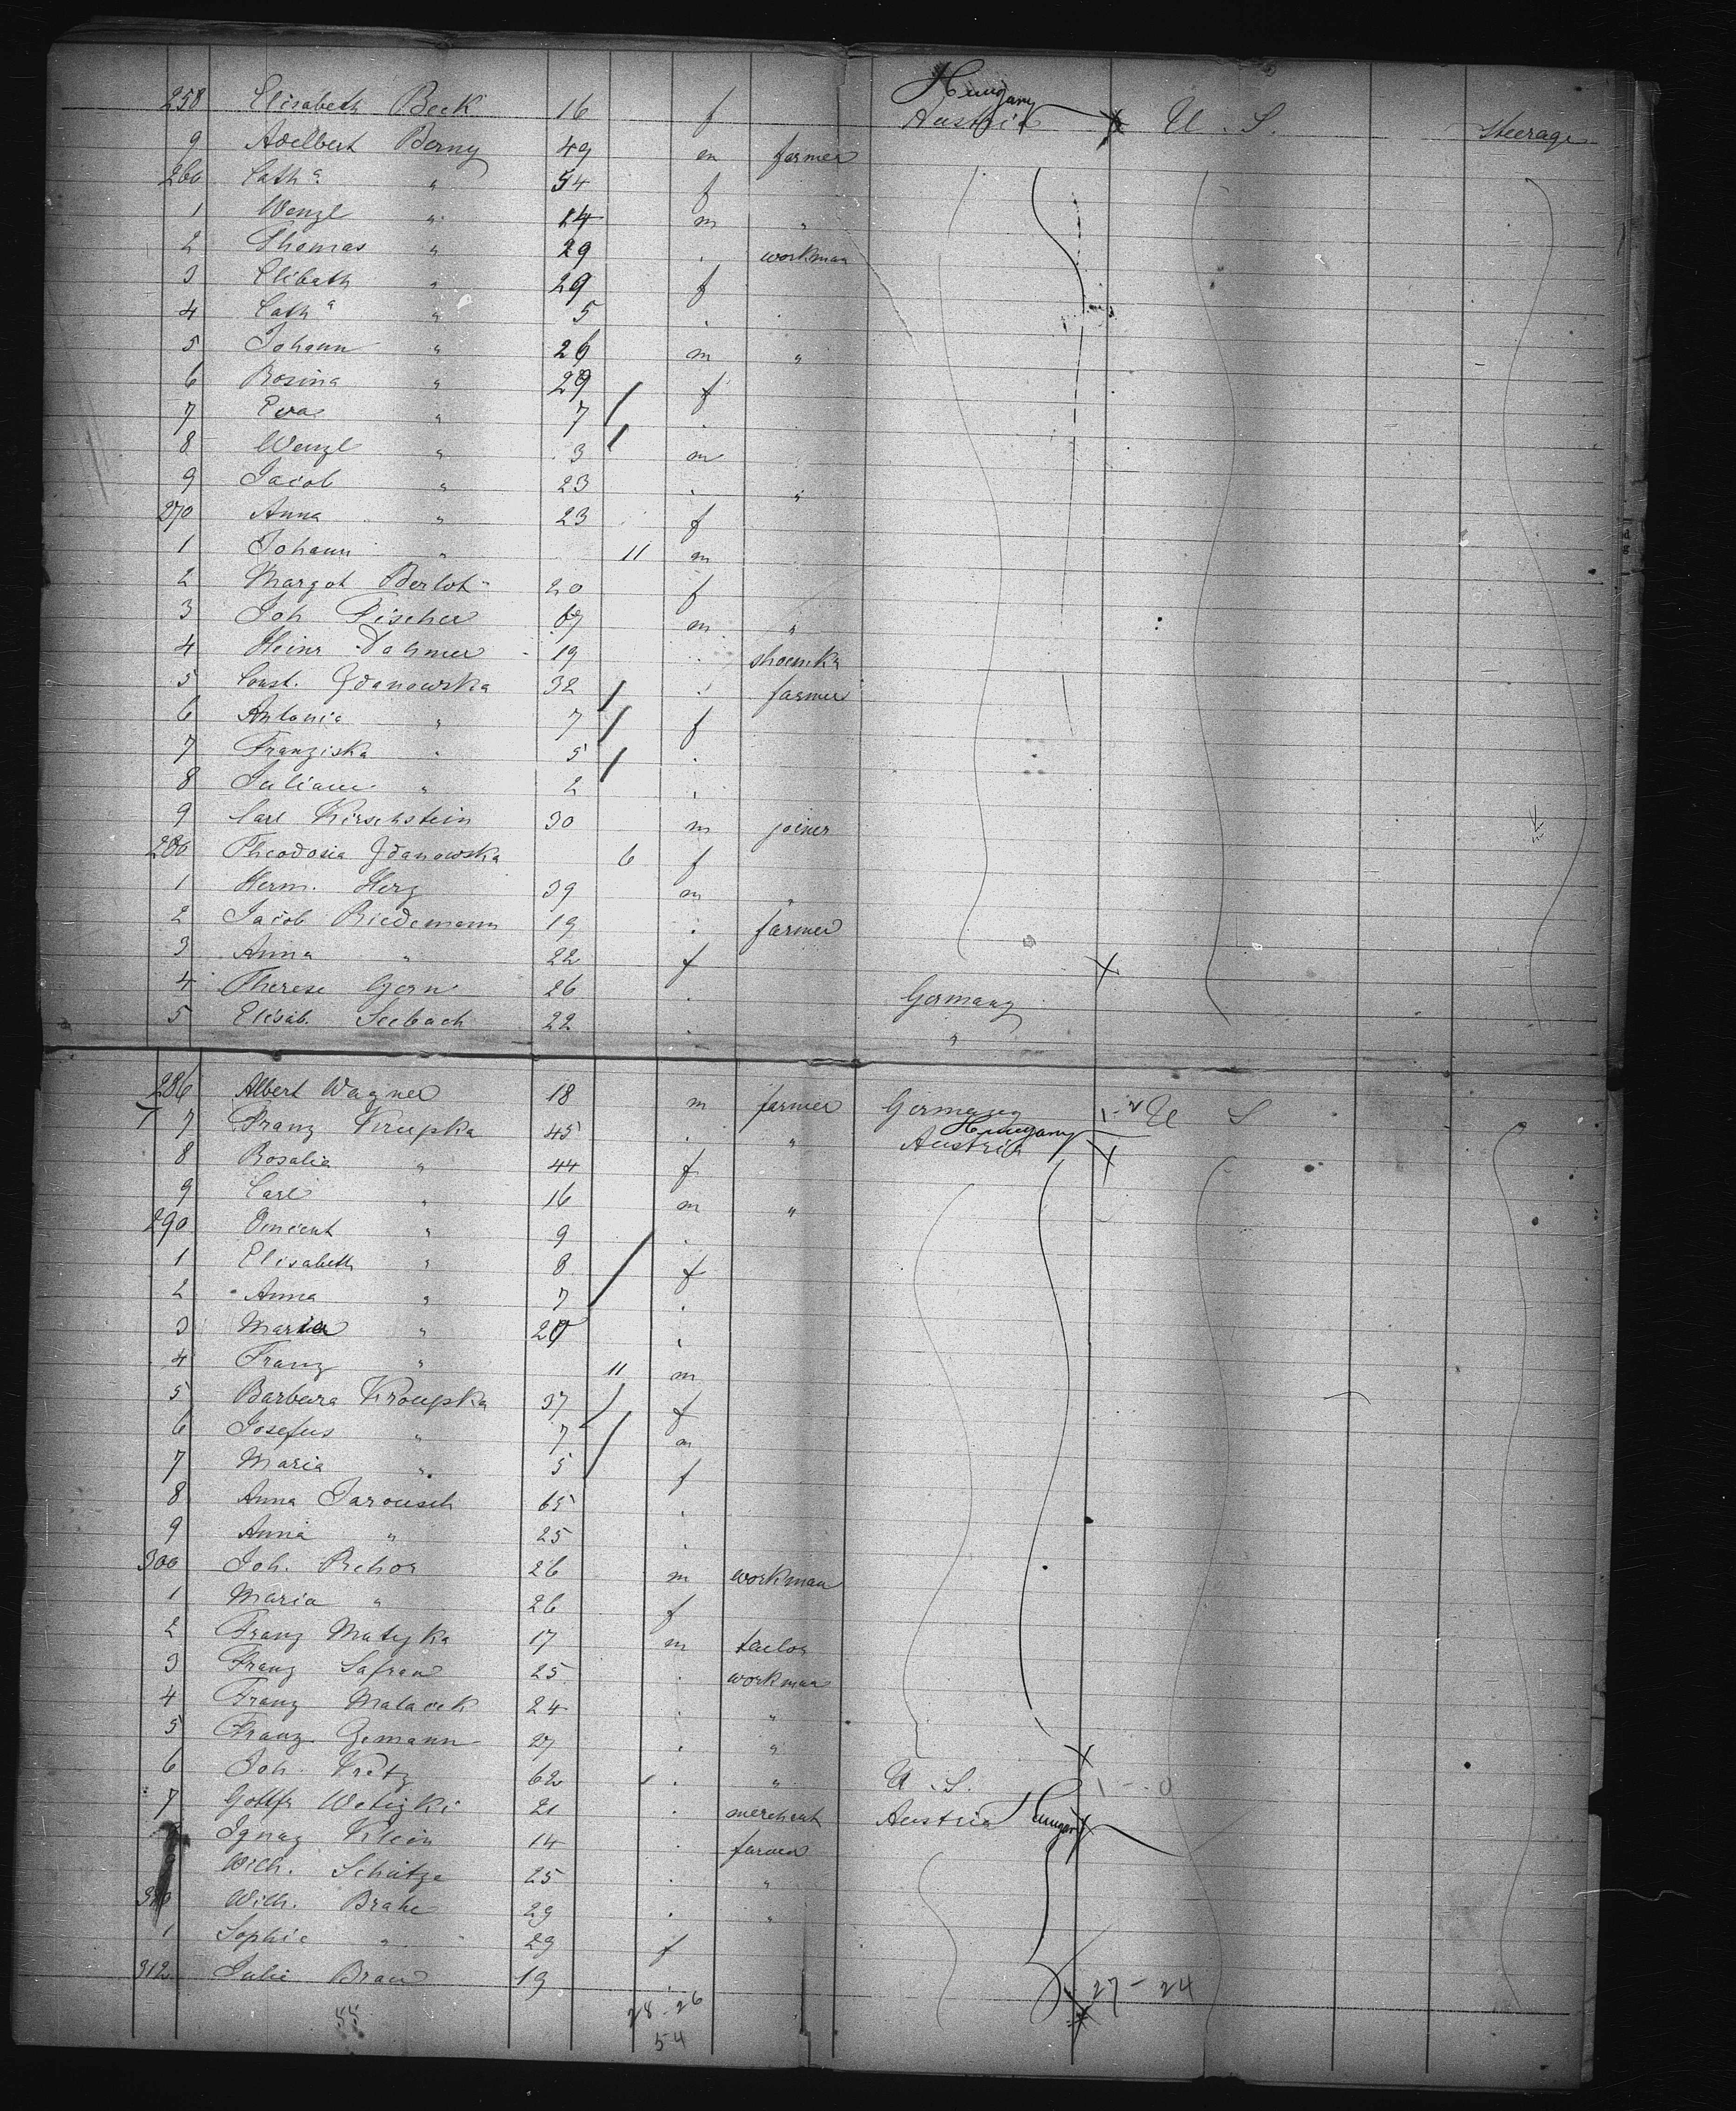 258 Elisabeth Beck 16 f Hungary Austria U. S. Steerage
9 Adelbert Berny 49 m farmer
260 Cath a " 54 f
1 Wenzl " 14 m "
2 Thomas " 29 . workman
3 Elibath " 29 f
4 Cath a " 5 .
5 Johann " 26 m "
6 Rosina " 29 f
7 Eva " 7 .
8 Wenzl " 3 m
9 Jacob " 23 . "
270 Anna " 23 f
1 Johann " 11 m
2 Margot Berlot 20 f
3 Joh Fischer 67 m "
4 Heinr Dahmer 19 . shoemka
5 Const. Zdanowska 32 . farmer
6 Antonia " 7 f
7 Franziska " 5 .
8 Juliane " 2 .
9 Carl Kirschstein 30 m joiner
280 Theodosia Zdanowska 6 f
1 Herm. Herz 39 m "
2 Jacob Riedemann 19 . farmer
3 Anna " 22 f
4 Therese Gern 26 . Germany
5 Elisab. Seebach 22 . "
286 Albert Wagner 18 m farmer Germany 1-2 U S
7 Franz Krupka 45 . " Hungary Austria
8 Rosalia " 44 f
9 Carl " 16 m "
290 Vincent " 9 .
1 Elisabeth " 8 f
2 Anna " 7 .
3 Maria " 20 .
4 Franz " 11 m
5 Barbara Kroupka 37 f
6 Josefus " 7 m
7 Maria " 5 f
8 Anna Jarousch 65 .
9 Anna " 25 .
300 Joh. Rehor 26 m workman
1 Maria " 26 f
2 Franz Matyka 17 m tailor
3 Franz Safran 25 . workman
4 Franz Malacek 24 . "
5 Franz Zemann 27 . "
6 Joh. Kratz 62 . " U. S. 1-0
7 Gottfr Wotizki 21 . merchant Austria Hungary
Ignaz Klein 14 . farmer
9 Wilh. Schütze 25 . "
310 Wilh. Brahe 29 . "
1 Sophie " 29 f
312 Julie Braun 19 . 27-24
55 28-26
54